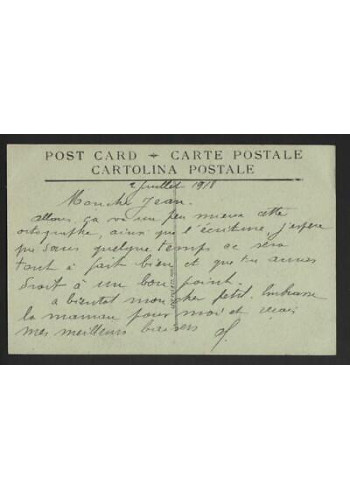 POST CARD - CARTE POSTALE
CARTOLINA POSTALE
2 Juillet 1918
Mon cher Jean.
allons, ça va un peu mieux cette
ortographe, ainsi que l'écriture, j'espère
que dans quelque temps ce sera
tout à fait bien et que tu auras
droit à un bon point.
a bientot mon cher petit. Embrasse
la maman pour moi et reçois
mes meilleurs baisers